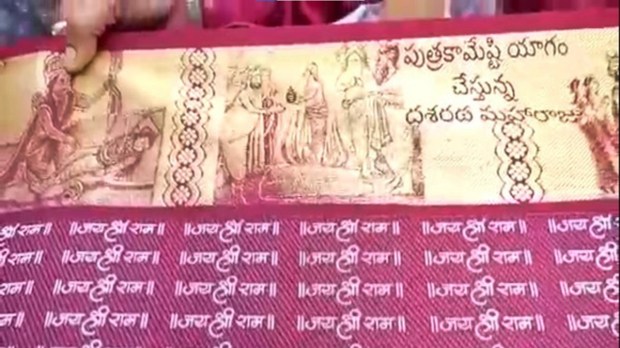 పుత్రకామేష్టి యాగం
చేస్తున్న
దశరధ మహారాజు
श्री राम॥ ॥जय श्री राम॥ ॥जय श्री राम॥ ॥जय श्री राम॥ ॥जय श्री राम॥ ॥जय श्री राम
श्री राम॥ ॥जय श्री राम॥ ॥जय श्री राम॥ ॥जय श्री राम॥ ॥जय श्री राम॥ ॥जय श्री राम
राम॥ ॥जय श्री राम॥ ॥जय श्री राम॥ ॥जय श्री राम॥ ॥जय श्री राम॥ ॥जय श्री
राम॥ ॥जय श्री राम॥ ॥जय श्री राम॥ ॥जय श्री राम॥ ॥जय श्री राम॥ ॥जय श्री